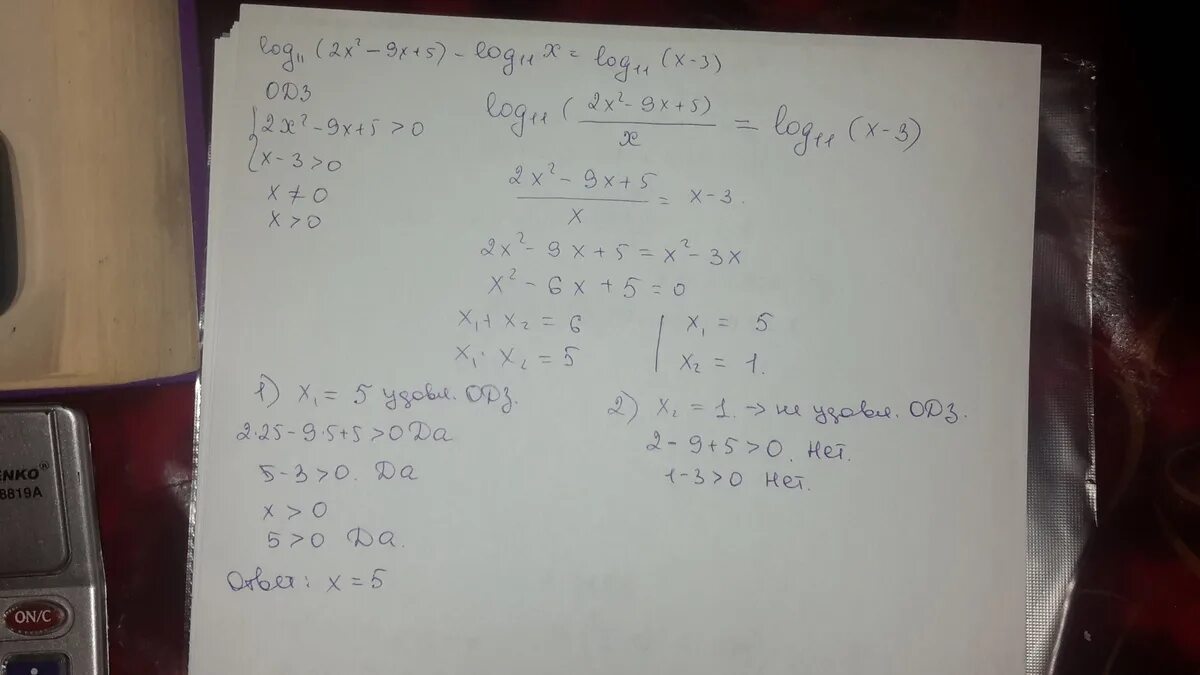 log₁₁(2x² - 9x + 5) - log₁₁ x = log₁₁ (x-3)
ОДЗ
{ 2x² - 9x + 5 > 0
x - 3 > 0
x ≠ 0
x > 0
log₁₁ ( (2x² - 9x + 5) / x = log₁₁ (x-3)
(2x² - 9x + 5) / x = x - 3.
2x² - 9x + 5 = x² - 3x
x² - 6x + 5 = 0
x₁ + x₂ = 6 | x₁ = 5
x₁ · x₂ = 5 | x₂ = 1.
1) x₁ = 5 удовл. ОДЗ.
2·25 - 9·5 + 5 > 0 Да
5 - 3 > 0. Да
x > 0
5 > 0 Да.
Ответ: x = 5
2) x₂ = 1. → не удовл. ОДЗ.
2 - 9 + 5 > 0. Нет.
1 - 3 > 0 Нет.
ENKO®
8819A
ON/C